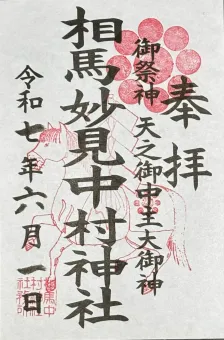 奉拝
御祭神 天之御中主大御神
相馬妙見中村神社
令和七年六月一日